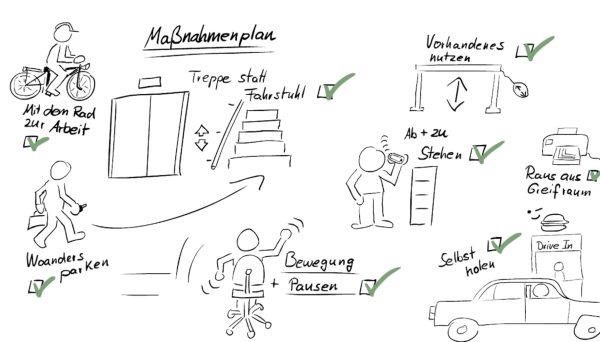 Maßnahmenplan
Mit dem Rad
zur Arbeit
Treppe statt
Fahrstuhl
Vorhandenes
nutzen
Ab + zu
Stehen
Raus aus
Greifraum
Woanders
parken
Bewegung
+ Pausen
Selbst
holen
Drive In